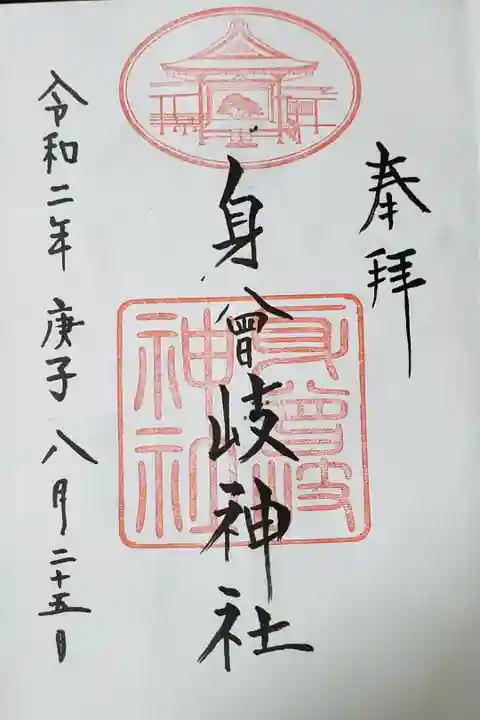 奉拝
身曾岐神社
身曾岐神社
令和二年 庚子 八月二十五日